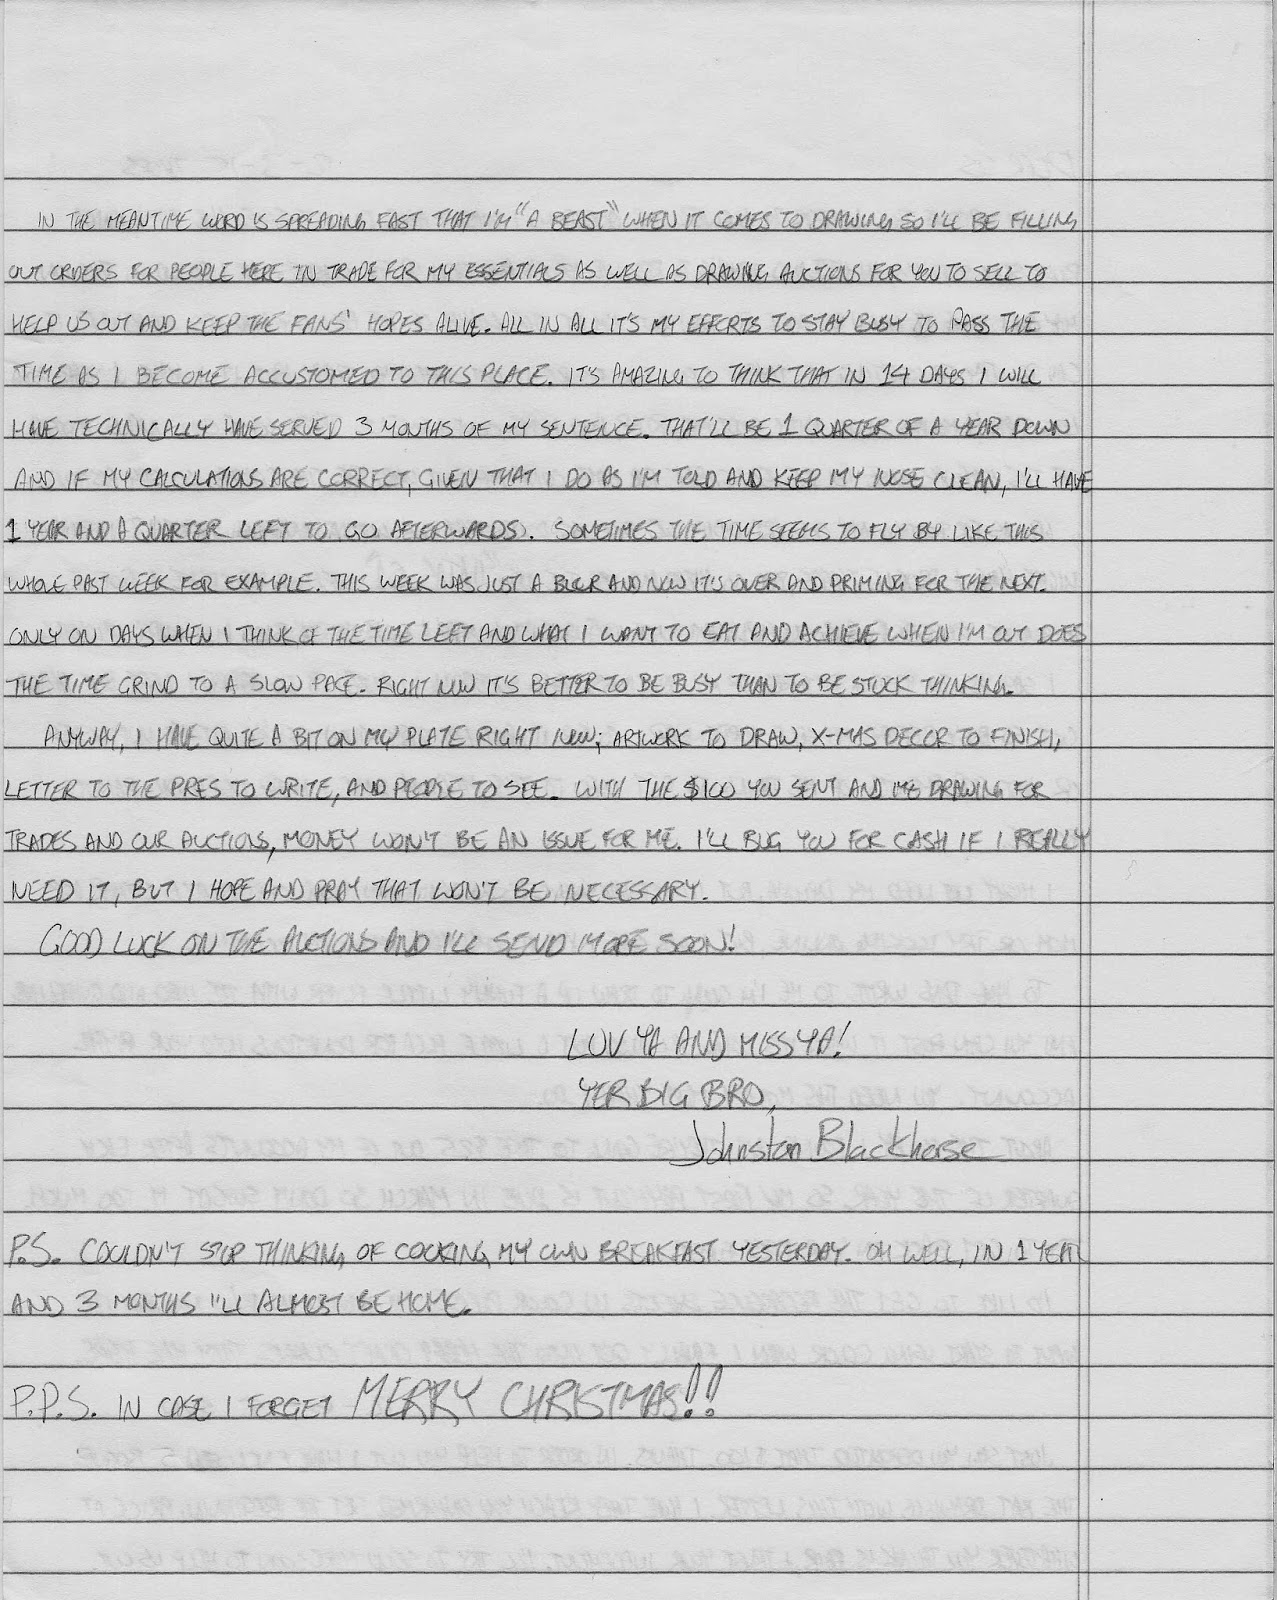 IN THE MEANTIME WORD IS SPREADING FAST THAT I'M "A BEAST" WHEN IT COMES TO DRAWING SO I'LL BE FILLING
OUT ORDERS FOR PEOPLE HERE IN TRADE FOR MY ESSENTIALS AS WELL AS DRAWING AUCTIONS FOR YOU TO SELL TO
HELP US OUT AND KEEP THE FANS' HOPES ALIVE. ALL IN ALL IT'S MY EFFORTS TO STAY BUSY TO PASS THE
TIME AS I BECOME ACCUSTOMED TO THIS PLACE. IT'S AMAZING TO THINK THAT IN 14 DAYS I WILL
HAVE TECHNICALLY HAVE SERVED 3 MONTHS OF MY SENTENCE. THAT'LL BE 1 QUARTER OF A YEAR DOWN
AND IF MY CALCULATIONS ARE CORRECT, GIVEN THAT I DO AS I'M TOLD AND KEEP MY NOSE CLEAN, I'LL HAVE
1 YEAR AND A QUARTER LEFT TO GO AFTERWARDS. SOMETIMES THE TIME SEEMS TO FLY BY LIKE THIS
WHOLE PAST WEEK FOR EXAMPLE. THIS WEEK WAS JUST A BLUR AND NOW IT'S OVER AND PRIMING FOR THE NEXT.
ONLY ON DAYS WHEN I THINK OF THE TIME LEFT AND WHAT I WANT TO EAT AND ACHIEVE WHEN I'M OUT DOES
THE TIME GRIND TO A SLOW PACE. RIGHT NOW IT'S BETTER TO BE BUSY THAN TO BE STUCK THINKING.
ANYWAY, I HAVE QUITE A BIT ON MY PLATE RIGHT NOW; ARTWORK TO DRAW, X-MAS DECOR TO FINISH,
LETTER TO THE PRES TO WRITE, AND PEOPLE TO SEE. WITH THE $100 YOU SENT AND ME DRAWING FOR
TRADES AND OUR AUCTIONS, MONEY WON'T BE AN ISSUE FOR ME. I'LL BUG YOU FOR CASH IF I REALLY
NEED IT, BUT I HOPE AND PRAY THAT WON'T BE NECESSARY.
GOOD LUCK ON THE AUCTIONS AND I'LL SEND MORE SOON!
LUV YA AND MISS YA!
YER BIG BRO,
Johnston Blackhorse
P.S. COULDN'T STOP THINKING OF COOKING MY OWN BREAKFAST YESTERDAY. OH WELL, IN 1 YEAR
AND 3 MONTHS I'LL ALMOST BE HOME.
P.P.S. IN CASE I FORGET MERRY CHRISTMAS!!